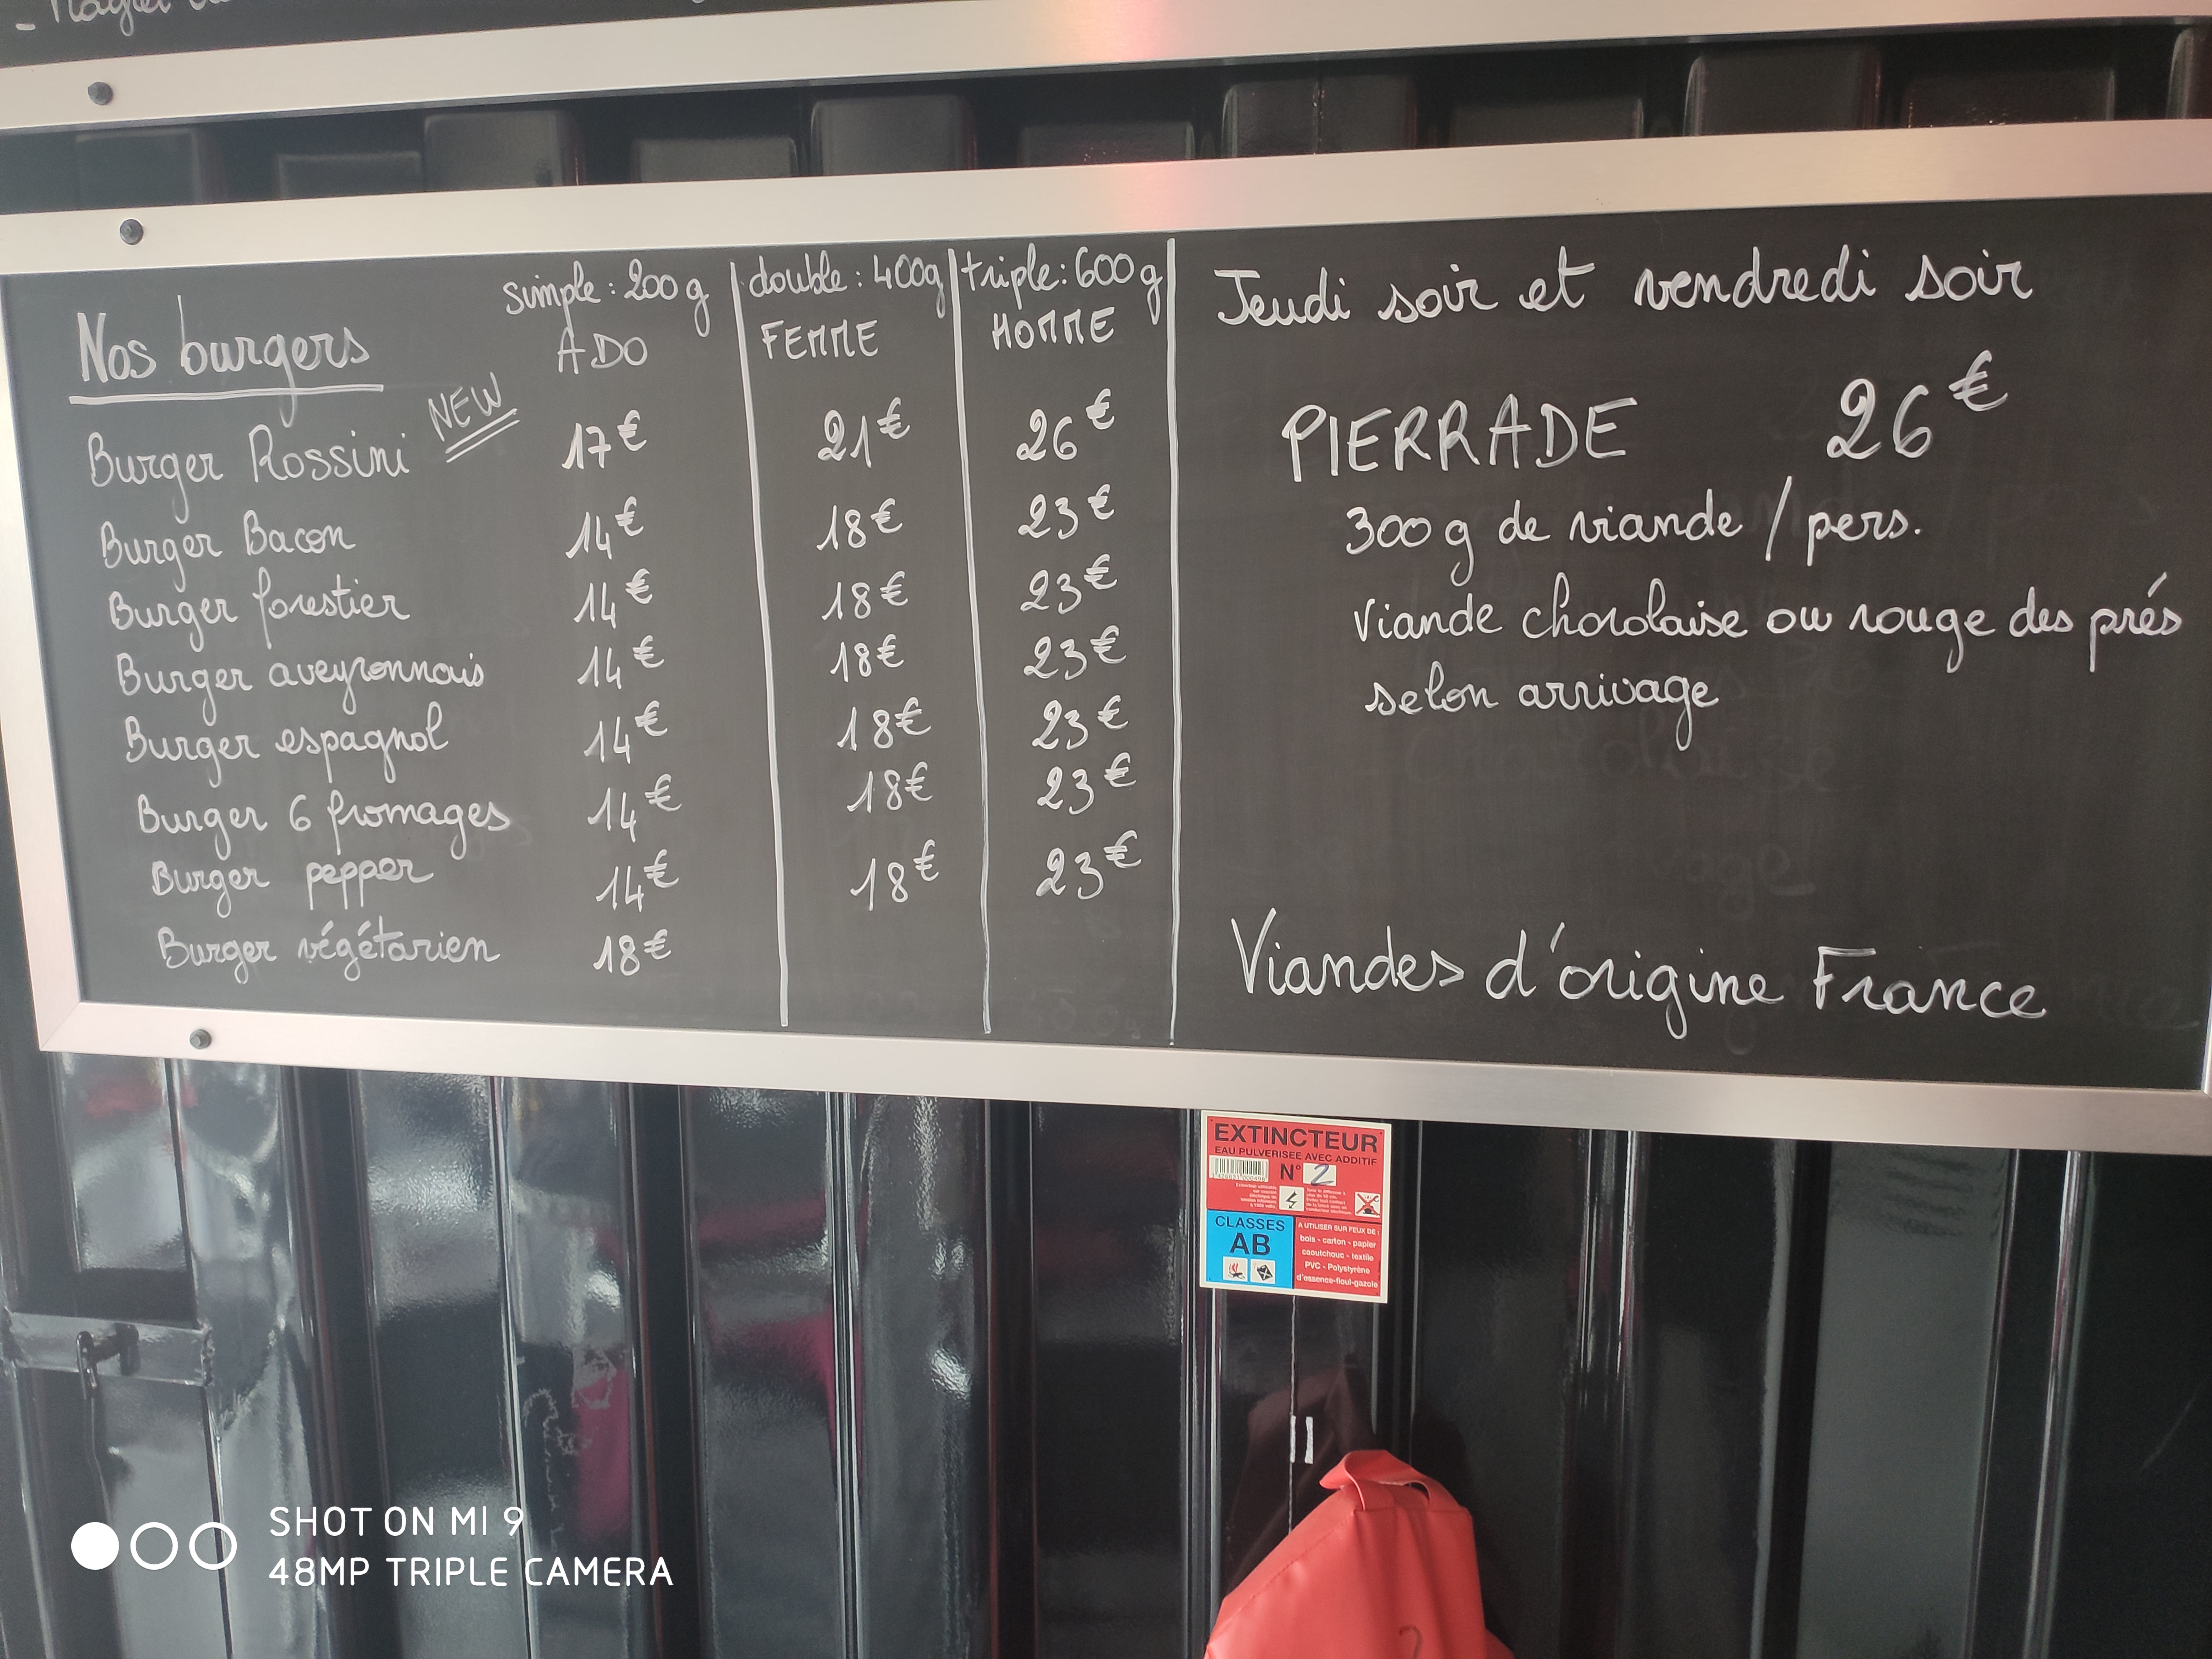 Nos burgers
simple : 200 g | double : 400g | triple : 600 g
ADO FEMME HOMME
Burger Rossini NEW 17€ 21€ 26€
Burger Bacon 14€ 18€ 23€
Burger forestier 14€ 18€ 23€
Burger aveyronnais 14€ 18€ 23€
Burger espagnol 14€ 18€ 23€
Burger 6 fromages 14€ 18€ 23€
Burger pepper 14€ 18€ 23€
Burger végétarien 18€
Jeudi soir et vendredi soir
PIERRADE 26€
300 g de viande / pers.
Viande charolaise ou rouge des prés
selon arrivage
Viandes d'origine France
EXTINCTEUR
EAU PULVERISEE AVEC ADDITIF
N° 2
CLASSES
AB
A UTILISER SUR FEUX DE :
bois - carton - papier
caoutchouc - textile
PVC - Polystyrène
d'essence-fioul-gazole
SHOT ON MI 9
48MP TRIPLE CAMERA